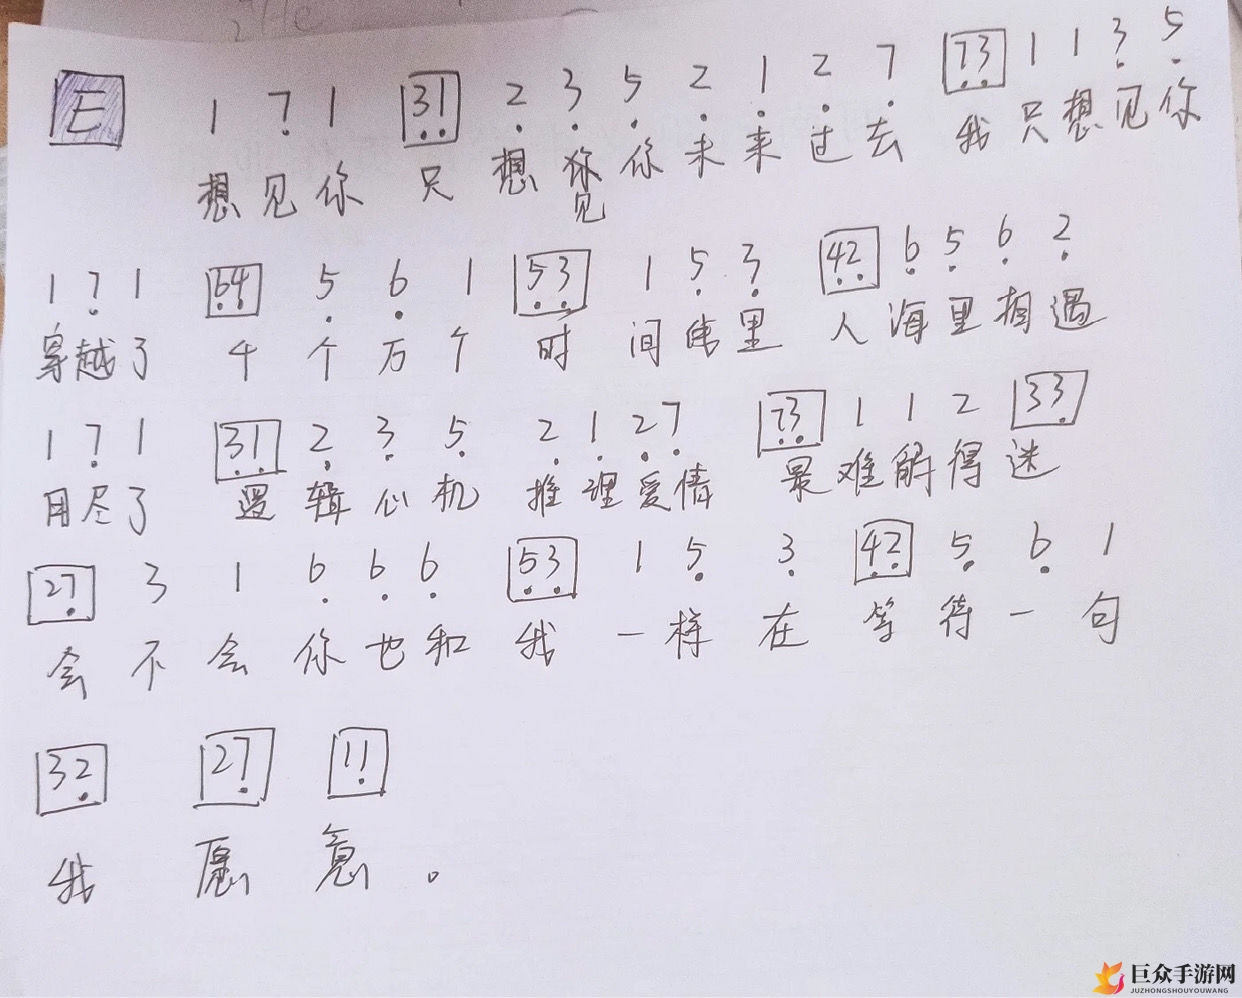 E 1 7̣ 1 [3̣1̣] 2̣ 3̣ 5̣ 2̣ 1̣ 2̣ 7̣ [7̣3̣] 1 1 3̣ 5̣
想见你 只 想 你 未 来 过 去 我 只 想 见 你
见
1 7̣ 1 [6̣4̣] 5̣ 6̣ 1 [5̣3̣] 1 5̣ 3̣ [42̣] 6̣ 5̣ 6̣ 2̣
穿越了 千 个 万 个 时 间 里 人 海 里 相 遇
1 7̣ 1 [3̣1̣] 2̣ 3̣ 5̣ 2̣ 1̣ 2̣ 7̣ [7̣3̣] 1 1 2 [33̣]
用尽了 逻 辑 心 机 推 理 爱 情 最 难 解 得 迷
[27̣] 3 1 6̣ 6̣ 6̣ [5̣3̣] 1 5̣ 3̣ [4̣2̣] 5̣ 6̣ 1
会 不 会 你 也 和 我 一 样 在 等 待 一 句
[32̣] [27̣] [11̣]
我 愿 意 。
巨众手游网
JUZHONGSHOUYOUWANG